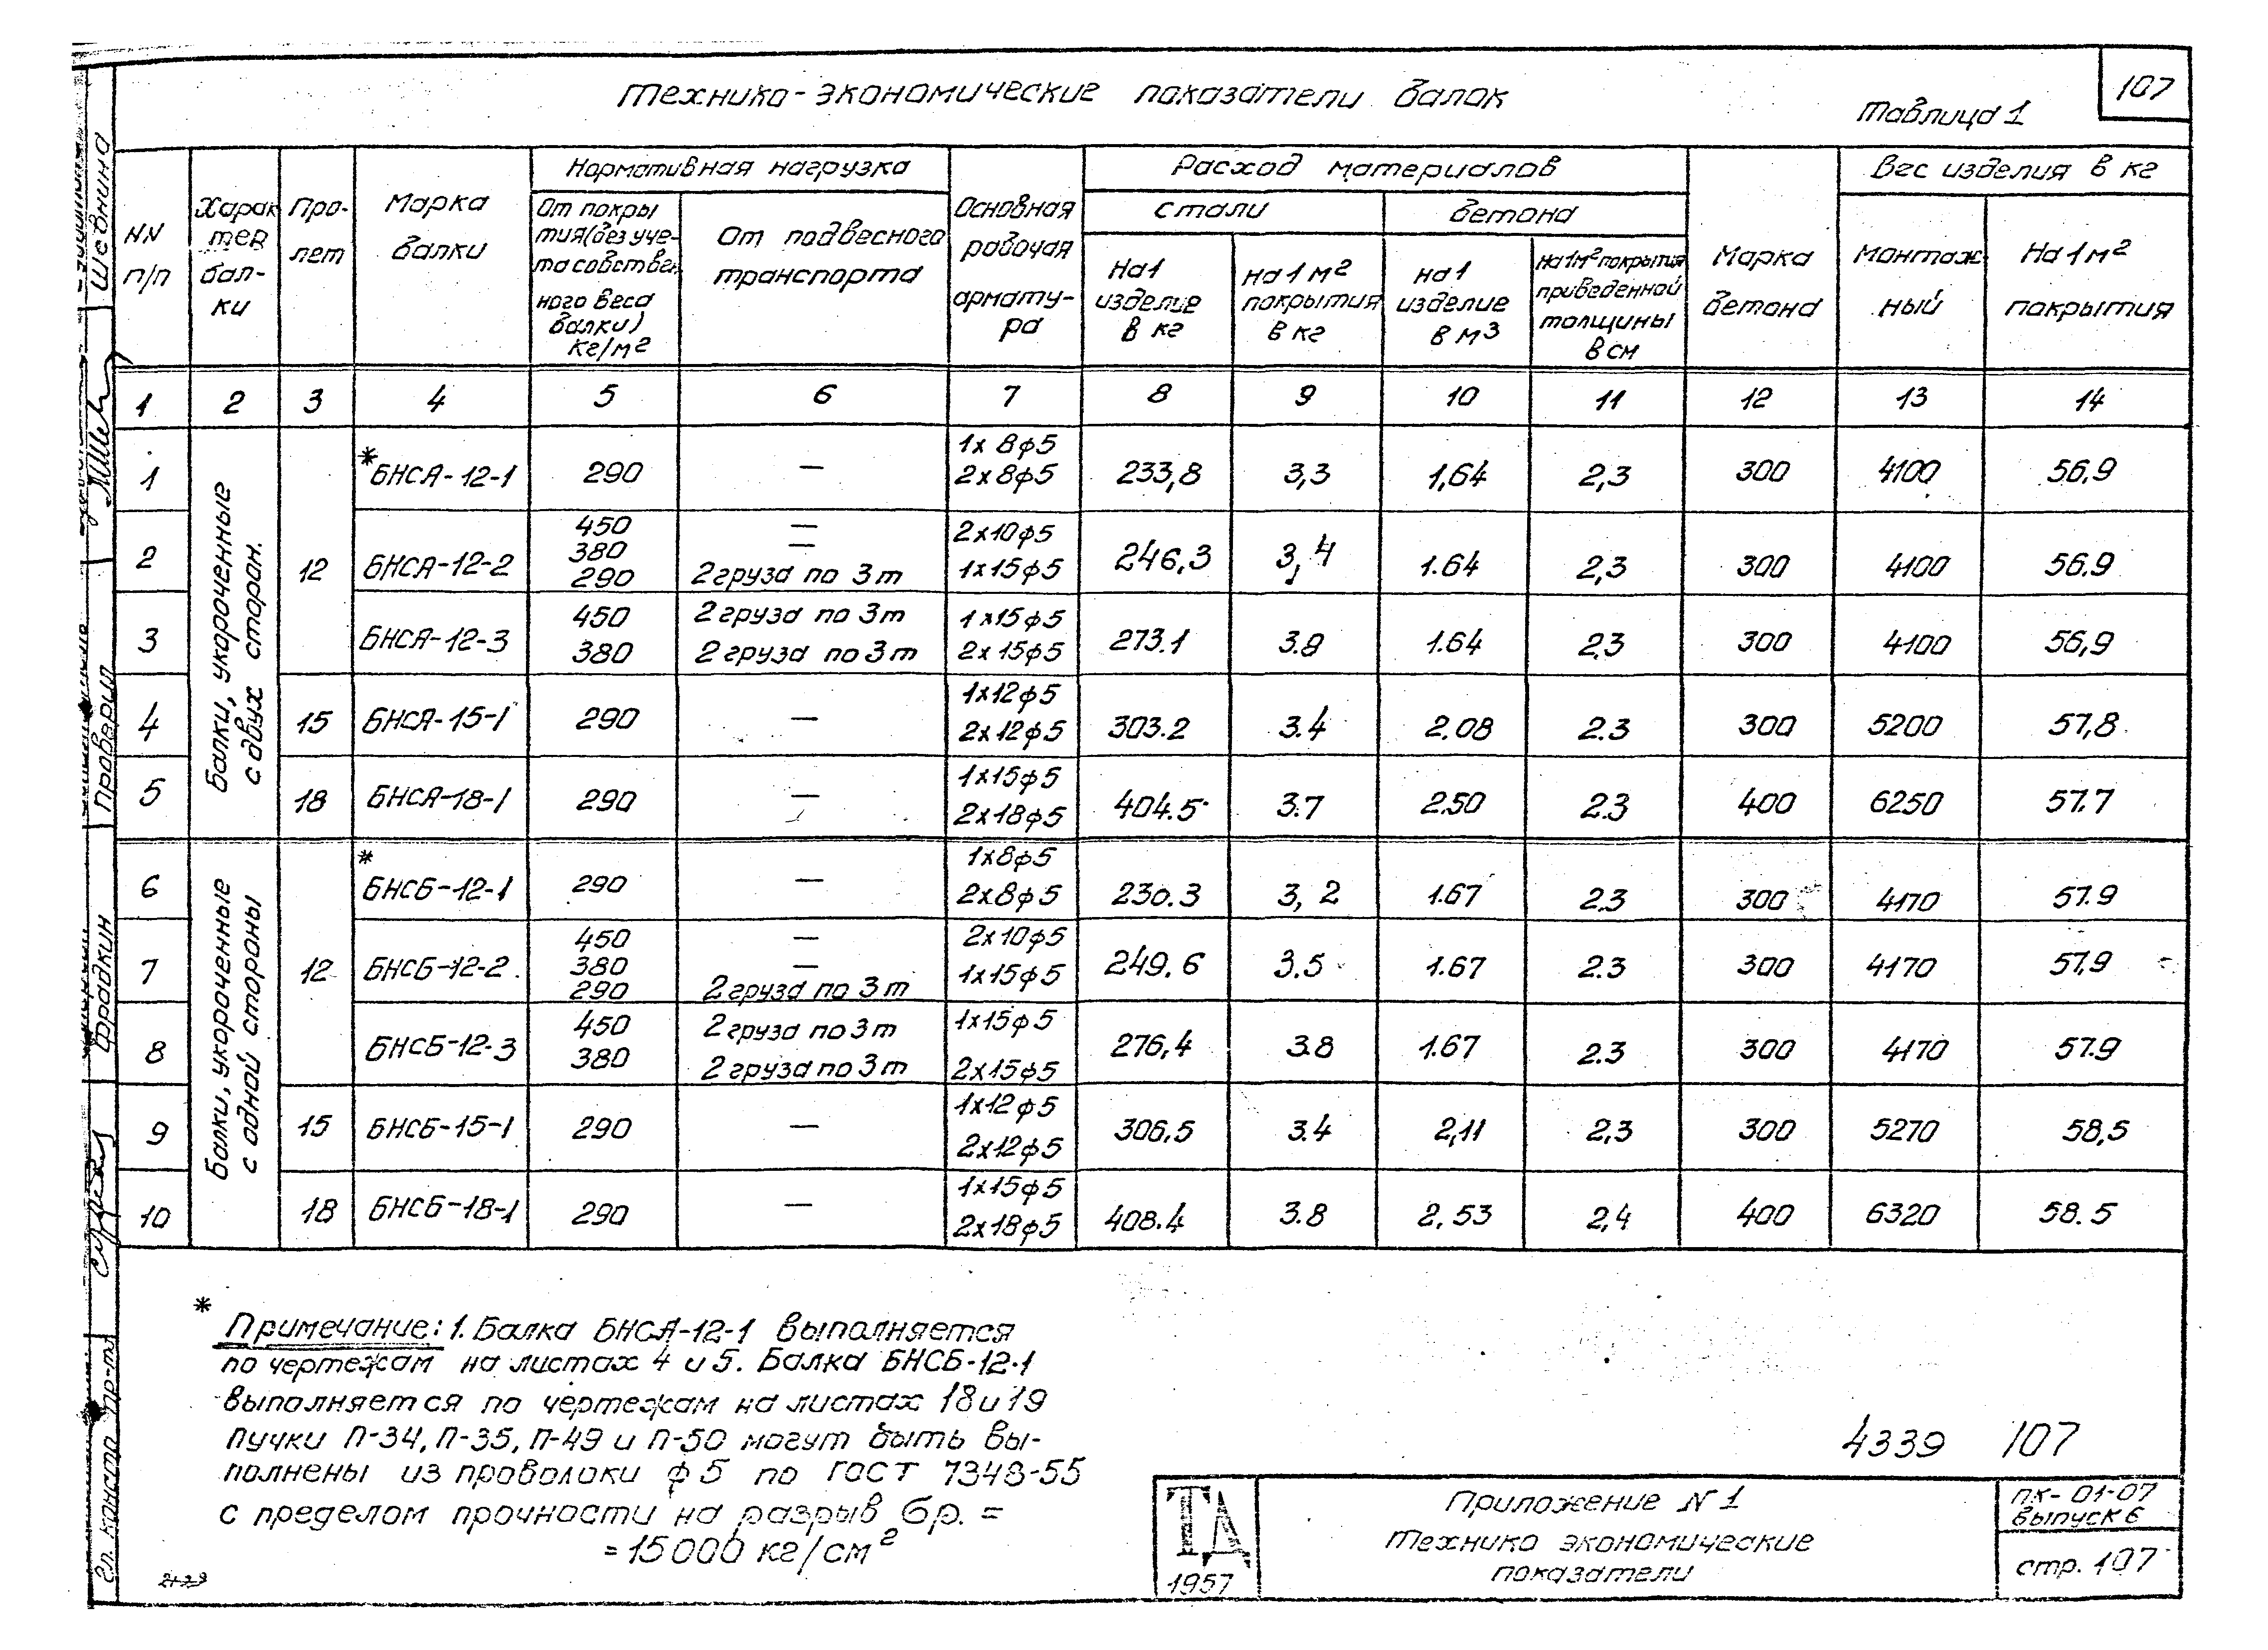 107
Технико-экономические показатели балок
Таблица 1
NN п/п
Харак тер бал- ки
Про- лет
Марка балки
Нормативная нагрузка
От покры тия (без уче- та собствен ного веса балки) кг/м2
От подвесного транспорта
Основная рабочая армату- ра
Расход материалов
стали
бетона
На 1 изделие в кг
на 1 м2 покрытия в кг
на 1 изделие в м3
на 1м2 покрытия приведенной толщины в см
Марка бетона
Вес изделия в кг
Монтаж- ный
На 1 м2 покрытия
1 2 3 4 5 6 7 8 9 10 11 12 13 14
Балки, укороченные с двух сторон.
1 *БНСА-12-1 290 — 1х8ф5 2х8ф5 233,8 3,3 1,64 2,3 300 4100 56,9
12
2 БНСА-12-2 450 — 380 — 290 2 груза по 3т 2х10ф5 1х15ф5 246,3 3,4 1.64 2,3 300 4100 56.9
3 БНСА-12-3 450 2 груза по 3т 380 2 груза по 3т 1х15ф5 2х15ф5 273.1 3.9 1.64 2.3 300 4100 56,9
4 15 БНСА-15-1 290 — 1х12ф5 2х12ф5 303.2 3.4 2.08 2.3 300 5200 57,8
5 18 БНСА-18-1 290 — 1х15ф5 2х18ф5 404.5 3.7 2.50 2.3 400 6250 57.7
Балки, укороченные с одной стороны
6 *БНСБ-12-1 290 — 1х8ф5 2х8ф5 230.3 3,2 1.67 2.3 300 4170 57.9
12
7 БНСБ-12-2 450 — 380 — 290 2 груза по 3т 2х10ф5 1х15ф5 249.6 3.5 1.67 2.3 300 4170 57.9
8 БНСБ-12-3 450 2 груза по 3т 380 2 груза по 3т 1х15ф5 2х15ф5 276,4 3.8 1.67 2.3 300 4170 57.9
9 15 БНСБ-15-1 290 — 1х12ф5 2х12ф5 306,5 3.4 2,11 2,3 300 5270 58,5
10 18 БНСБ-18-1 290 — 1х15ф5 2х18ф5 408.4 3.8 2,53 2,4 400 6320 58.5
* Примечание: 1. Балка БНСА-12-1 выполняется
по чертежам на листах 4 и 5. Балка БНСБ-12-1
выполняется по чертежам на листах 18 и 19
пучки П-34, П-35, П-49 и П-50 могут быть вы-
полнены из проволоки ф5 по ГОСТ 7348-55
с пределом прочности на разрыв бр. =
= 15000 кг/см2
4339 107
ТД
1957
Приложение N 1
Технико экономические
показатели
ПК-01-07
выпуск 6
стр. 107
Шевнина
Проверил
Фрадкин
Гл. констр. пр-та